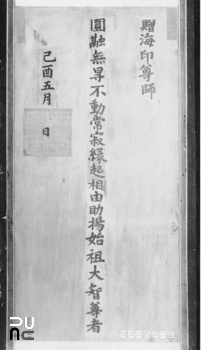 贈海印尊師
圓融無导不動常寂緣起相由助揚始祖大智尊者
己酉五月 日
국립중앙박물관